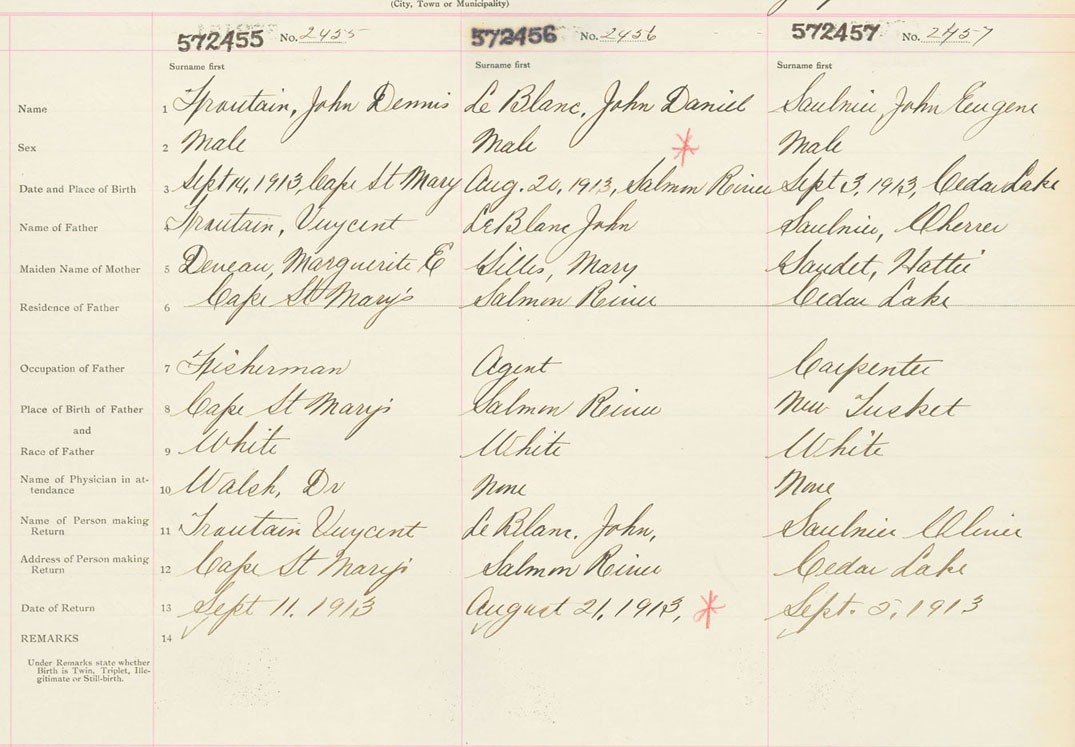 (City, Town or Municipality)
572455 No. 2455 572456 No. 2456 572457 No. 2457
Surname first Surname first Surname first
Name 1 Troutain, John Dennis Le Blanc, John Daniel Saulnier, John Eugene
Sex 2 Male Male Male
Date and Place of Birth 3 Sept 14, 1913, Cape St Mary Aug. 20, 1913, Salmon River Sept 3, 1913, Cedar Lake
Name of Father 4 Troutain, Vuycent LeBlanc John Saulnier,
Maiden Name of Mother 5 Deveau, Marguerite E Gillis, Mary Gaudet, Hattie
Residence of Father 6 Cape St Mary's Salmon River Cedar Lake
Occupation of Father 7 Fisherman Agent Carpenter
Place of Birth of Father 8 Cape St Mary's Salmon River New Tusket
and
Race of Father 9 White White White
Name of Physician in at-
tendance 10 Walsh, Dr None None
Name of Person making
Return 11 Troutain Vuycent Le Blanc. John, Saulnier Olivier
Address of Person making
Return 12 Cape St Mary's Salmon River Cedar Lake
Date of Return 13 Sept 11. 1913 August 21, 1913, Sept. 5, 1913
REMARKS 14
Under Remarks state whether
Birth is Twin, Triplet, Ille-
gitimate or Still-birth.